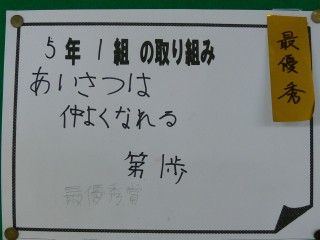 5年1組の取り組み
最優秀
あいさつは
仲よくなれる
第1歩
最優秀賞